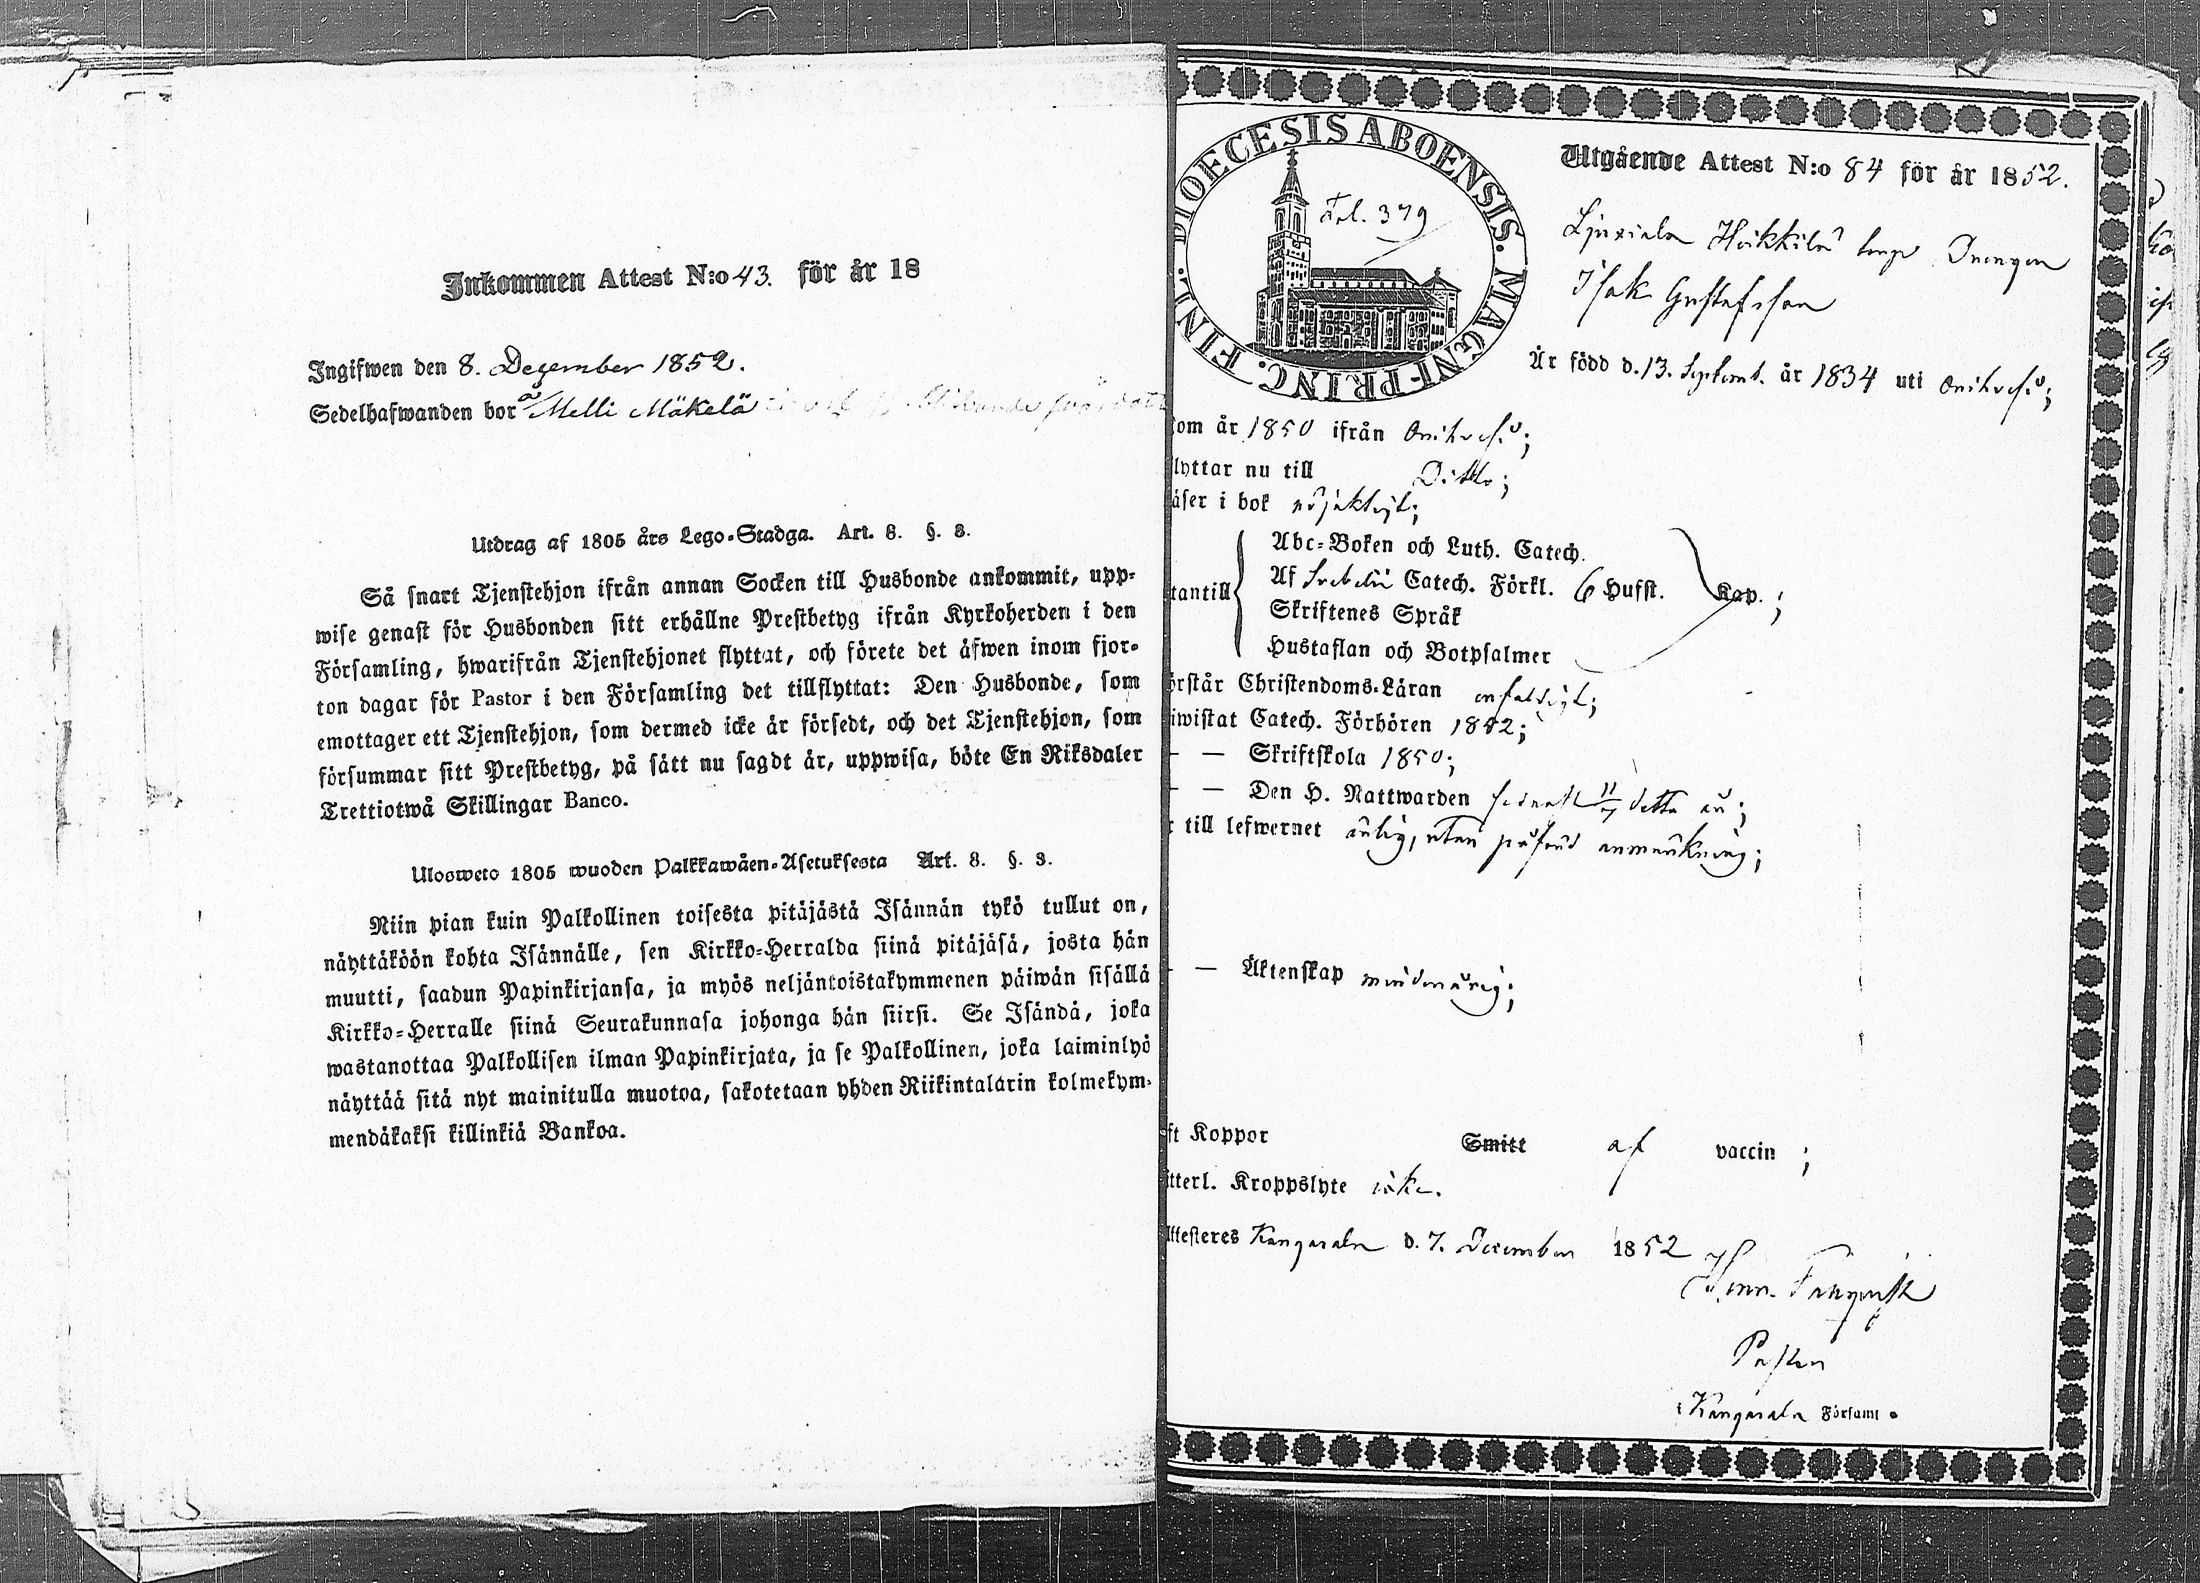 Inkommen Attest N:o 43. för år 18
Ingifwen den 8. December 1852.
Sedelhafwanden bor å Melli Mäkelä
Utdrag af 1805 års Lego-Stadga. Art. 8. §. 3.
Så snart Tjenstehjon ifrån annan Socken till Husbonde ankommit, upp-
wise genast för Husbonden sitt erhållne Prestbetyg ifrån Kyrkoherden i den
Församling, hwarifrån Tjenstehjonet flyttat, och förete det äfwen inom fjor-
ton dagar för Pastor i den Församling det tillflyttat: Den Husbonde, som
emottager ett Tjenstehjon, som dermed icke är försedt, och det Tjenstehjon, som
försummar sitt Prestbetyg, på sätt nu sagdt är, uppwisa, böte En Riksdaler
Trettiotwå Skillingar Banco.
Ulosweto 1805 wuoden Palkkawäen-Asetuksesta Art. 8. §. 3.
Niin pian kuin Palkollinen toisesta pitäjästä Isännän tykö tullut on,
näyttäköön kohta Isännälle, sen Kirkko-Herralda siinä pitäjäsä, josta hän
muutti, saadun Papinkirjansa, ja myös neljäntoistakymmenen päiwän sisällä
Kirkko-Herralle siinä Seurakunnasa johonga hän siirsi. Se Isändä, joka
wastanottaa Palkollisen ilman Papinkirjata, ja se Palkollinen, joka laiminlyö
näyttää sitä nyt mainitulla muotoa, sakotetaan yhden Riikintalarin kolmekym-
mendäkaksi killinkiä Bankoa.
DIOECESIS ABOENSIS. MAGNI-PRINC. FINL.
Fol. 379
Utgående Attest N:o 84 för år 1852.
Ljuxiala Heikkilä torp Drengen
Isak Gustafsson
Är född d. 13. Septemb. år 1834 uti Orihvesi;
kom år 1850 ifrån Orihvesi;
lyttar nu till Ditto;
äser i bok nöjaktigt;
tantill
Abc-Boken och Luth. Catech.
Af Svebelii Catech. Förkl. 6 Hufst. Kap. ;
Skriftenes Språk
Hustaflan och Botpsalmer
örstår Christendoms-Läran enfaldigt;
iwistat Catech. Förhören 1852;
— — Skriftskola 1850;
— — Den H. Nattwarden sednast detta år;
r till lefwernet ärlig, utan påförd anmärkning;
— — Äktenskap minderårig;
ft Koppor Smitt af vaccin ;
itterl. Kroppslyte icke.
Attesteres Kangasala d. 7. December 1852
Pastor
i Kangasala Församl.